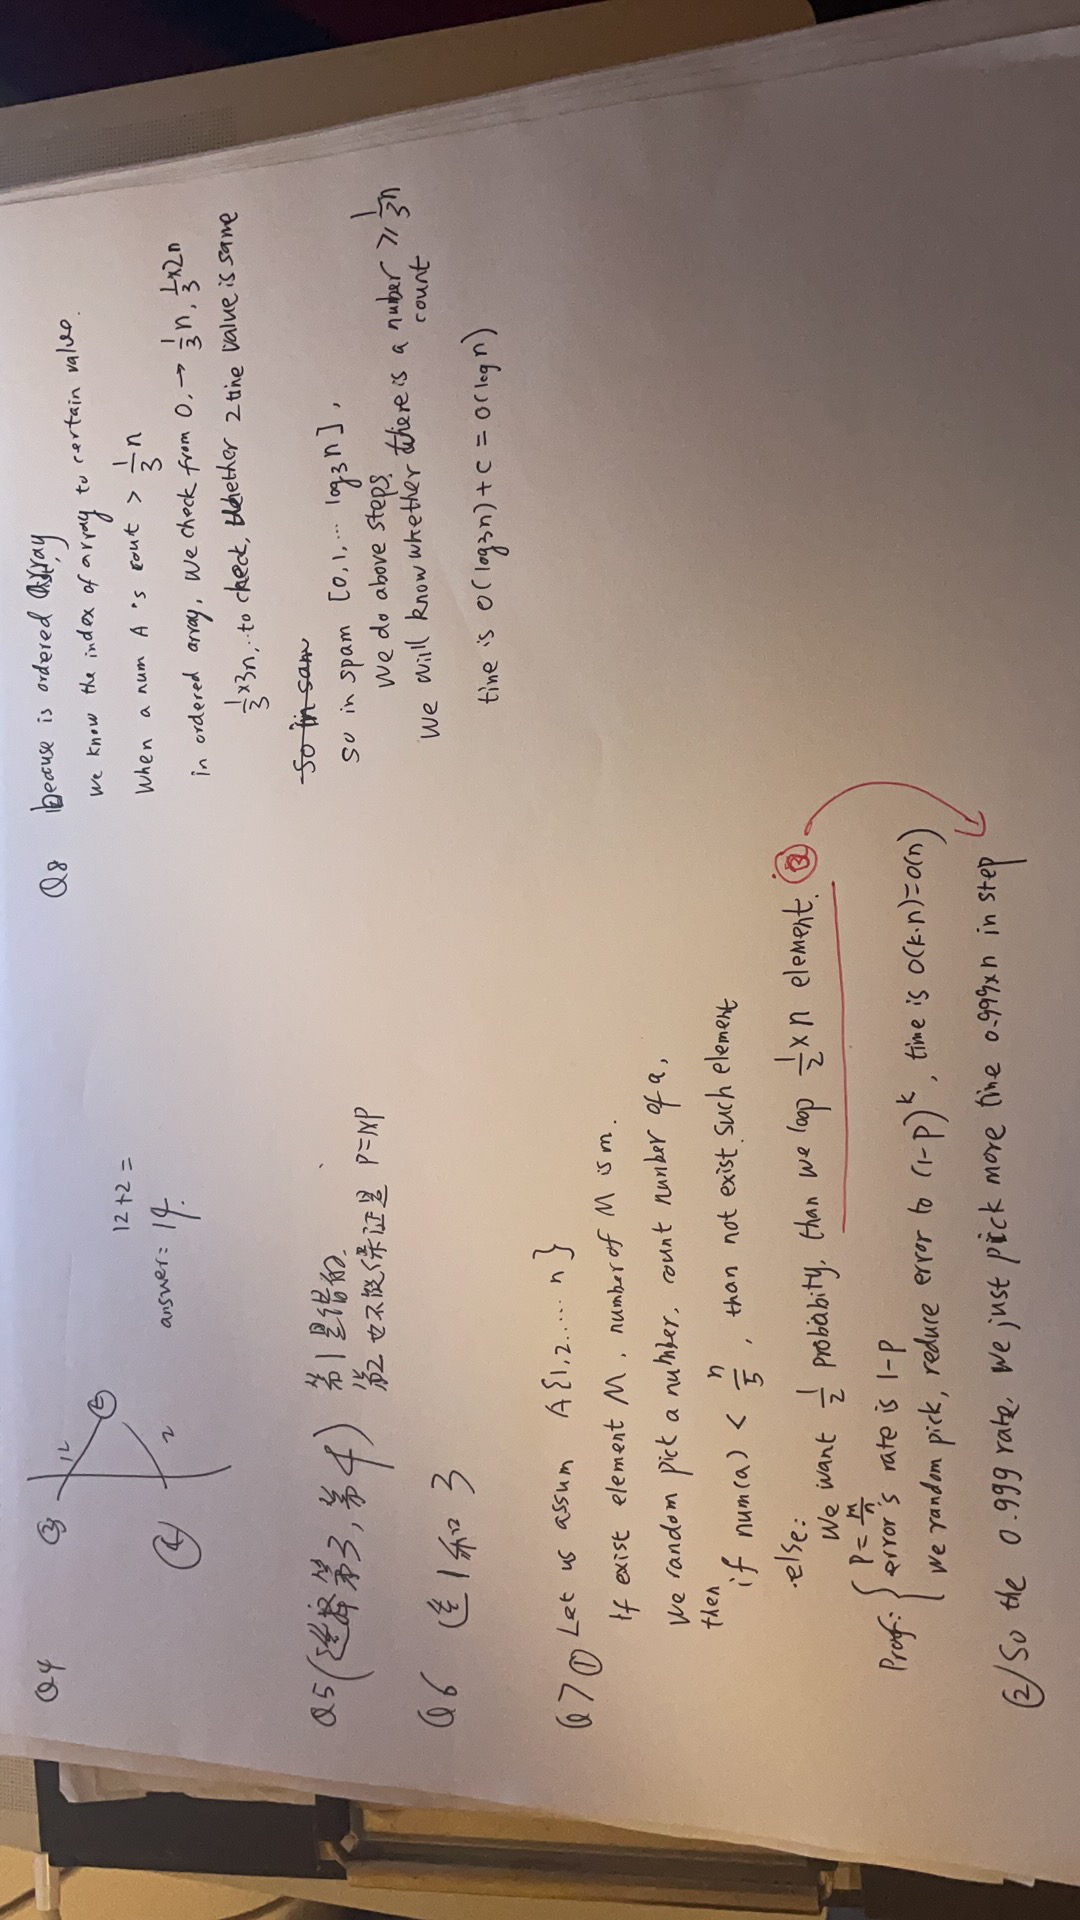 Q4
③ 12 ⑤
④ 2
12+2=
answer: 14.
Q5 (选择第3, 第4) 第1是错的.
第2也不能保证是 P=NP
Q6 选1和3
Q7 ① Let us assum A{1,2.....n}
If exist element M, number of M is m.
We random pick a number, count number of a,
then
if num(a) < n/5, than not exist such element
else:
We want 1/2 probabity, than we loop 1/2×n element. ②
Proof: { P = m/n
error's rate is 1-P
we random pick, reduce error to (1-P)^k, time is O(k·n)=O(n)
② So the 0.999 rate. we just pick more time 0.999×n in step
Q8 because is ordered array
we know the index of array to certain value.
When a num A's cout > 1/3 n
in ordered array, we check from 0, → 1/3 n, 1/3×2n
1/3×3n, to check, whether 2 time value is same
So in sam
so in spam [0,1,... log₃n],
we do above steps.
we will know whether there is a nuber ≥ 1/3 n
count
time is O(log₃n)+C = O(logn)